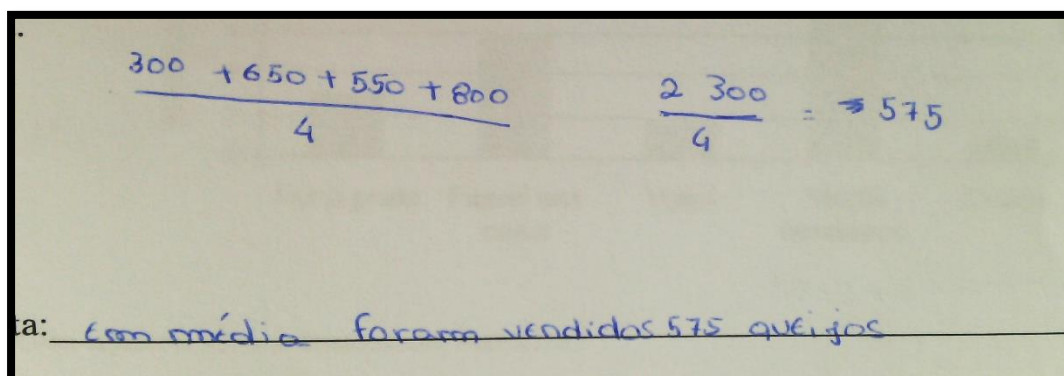 300 + 650 + 550 + 800
4
2 300
4
= 575
ta: em média foram vendidos 575 queijos